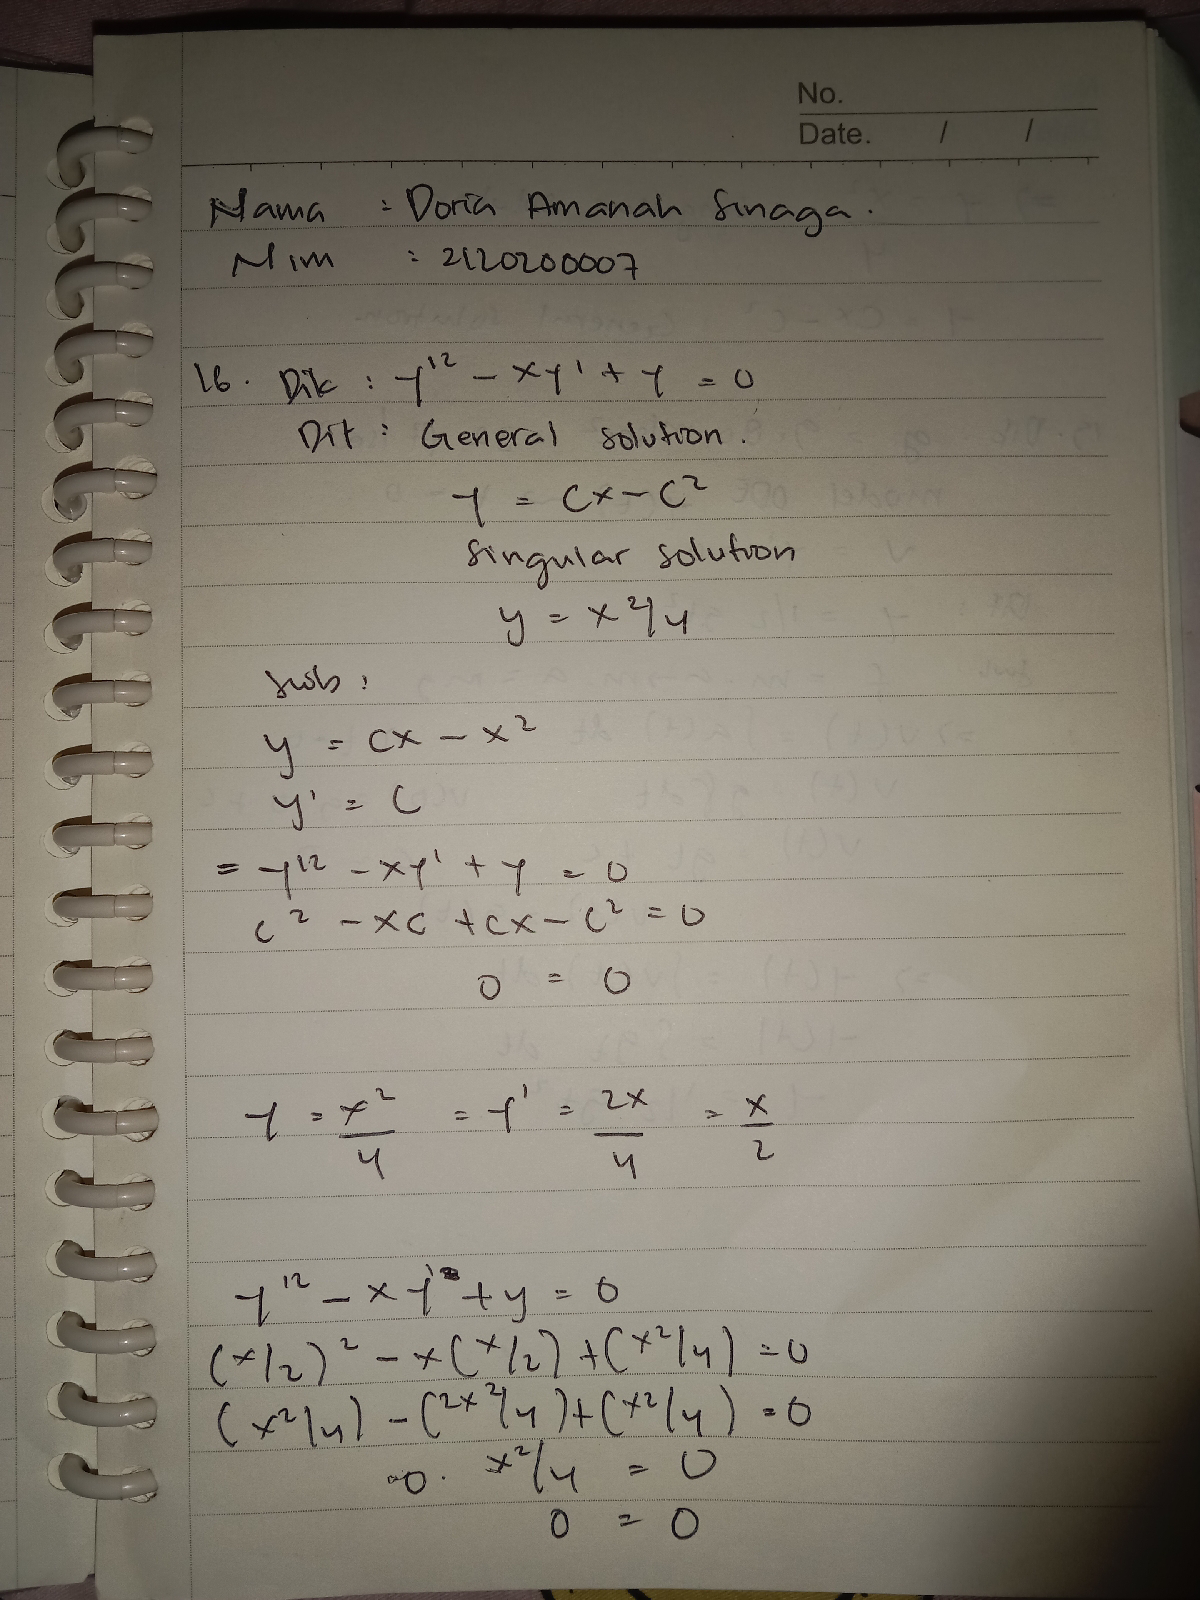 No.
Date. / /
Nama : Doria Amanah Sinaga.
Nim : 2120200007
16. Dik : y'² - xy' + y = 0
Dit : General solution.
y = cx - c²
Singular solution
y = x²/4
sub :
y = cx - x²
y' = c
= y'² - xy' + y = 0
c² - xc + cx - c² = 0
0 = 0
y = x²/4 = y' = 2x/4 = x/2
y'² - xy' + y = 0
(x/2)² - x(x/2) + (x²/4) = 0
(x²/4) - (2x²/4) + (x²/4) = 0
0. x²/4 = 0
0 = 0